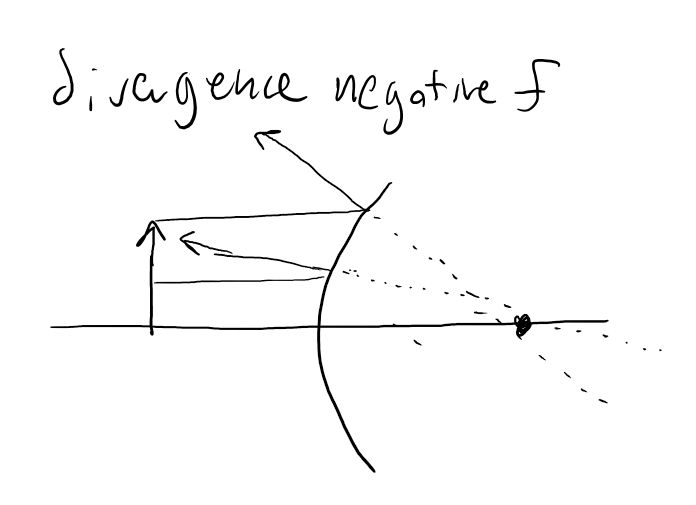 divergence negative f